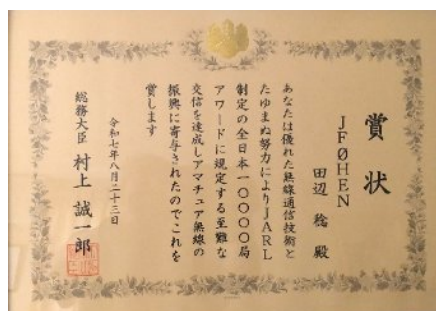 賞状
JFØHEN
田辺 稔 殿
あなたは優れた無線通信技術と
たゆまぬ努力によりJARL
制定の全日本一〇〇〇〇局
アワードに規定する至難な
交信を達成しアマチュア無線の
振興に寄与されたのでこれを
賞します
令和七年八月二十三日
総務大臣 村上 誠一郎